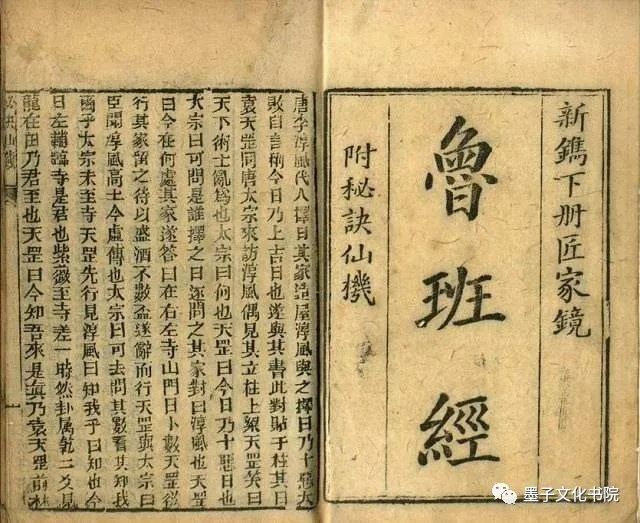 新鐫下册匠家鏡
魯班經
附秘訣仙機
唐李淳風代人擇日其家造屋淳風與之擇日乃十惡大
敗自稱今日乃上吉日也遂與其書此對貼于柱其日
袁天罡同唐太宗來訪淳風偶見其立柱上梁天罡笑曰
天下術士亂爲也太宗曰何也天罡曰今日乃十惡日也
太宗曰可問是誰擇之日逐問之其家對曰淳風也天罡
曰今在何處其家遂答曰在右左寺山門日卜數天罡後
行其家留之待以盛酒不數盃遂辭而行天罡與太宗曰
臣聞淳風高士今虛傳也太宗曰可去問其數看其知我
而乎太宗未至寺天罡先行見淳風曰知我乎曰知也今
日左輔臨寺是君也紫薇至寺差一時然卦属乾二爻見
龍在田乃君至也天罡曰今知吾來是眞乃袁天罡
墨子文化书院